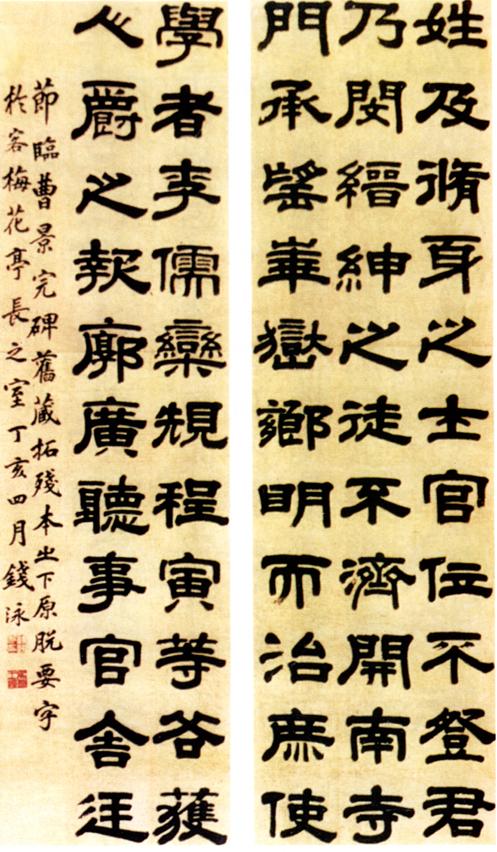 姓及脩身之士官位不登君
乃閔縉紳之徒不濟開南寺
門承望華嶽鄉明而治庶使
學者李儒欒規程寅等各獲
人爵之報廓廣聽事官舍廷
節臨曹景完碑舊藏拓殘本之下原脫要字
於客梅花亭長之室丁亥四月錢泳